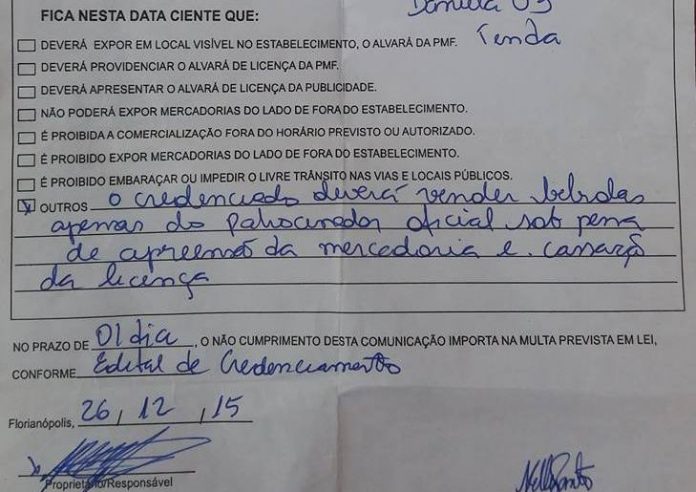 Daniela 03
FICA NESTA DATA CIENTE QUE:
Tenda
DEVERÁ EXPOR EM LOCAL VISÍVEL NO ESTABELECIMENTO, O ALVARÁ DA PMF.
DEVERÁ PROVIDENCIAR O ALVARÁ DE LICENÇA DA PMF.
DEVERÁ APRESENTAR O ALVARÁ DE LICENÇA DA PUBLICIDADE.
NÃO PODERÁ EXPOR MERCADORIAS DO LADO DE FORA DO ESTABELECIMENTO.
É PROIBIDA A COMERCIALIZAÇÃO FORA DO HORÁRIO PREVISTO OU AUTORIZADO.
É PROIBIDO EXPOR MERCADORIAS DO LADO DE FORA DO ESTABELECIMENTO.
É PROIBIDO EMBARAÇAR OU IMPEDIR O LIVRE TRÂNSITO NAS VIAS E LOCAIS PÚBLICOS.
X OUTROS o credenciado deverá vender bebidas
apenas do patrocinador oficial sob pena
de apreensão da mercadoria e cassação
da licença
NO PRAZO DE 01 dia, O NÃO CUMPRIMENTO DESTA COMUNICAÇÃO IMPORTA NA MULTA PREVISTA EM LEI,
CONFORME Edital de Credenciamento
Florianópolis, 26, 12, 15
Proprietário/Responsável